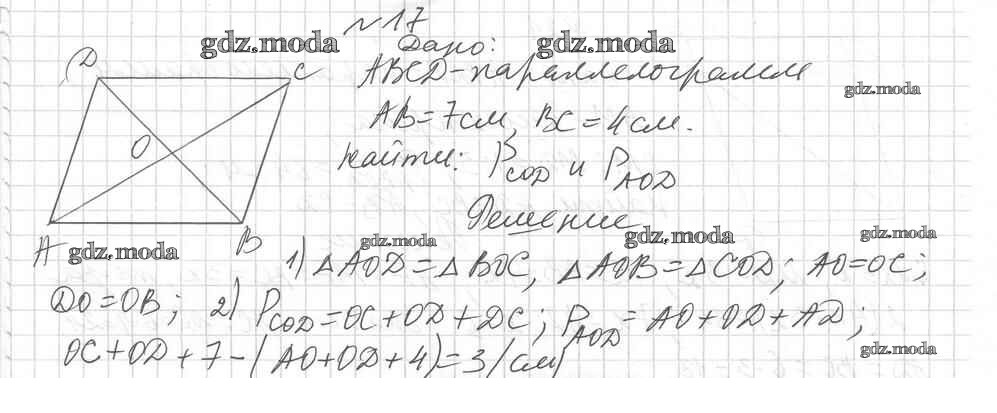 №17
gdz.moda
Дано:
gdz.moda
D
C
ABCD - параллелограмм
gdz.moda
AB = 7см, BC = 4см.
O
Найти: P_COD и P_AOD
Решение
A
gdz.moda
B
gdz.moda
gdz.moda
gdz.moda
1) △AOD = △BOC, △AOB = △COD; AO = OC;
DO = OB; 2) P_COD = OC + OD + DC; P_AOD = AO + OD + AD;
OC + OD + 7 - (AO + OD + 4) = 3 (см)
gdz.moda